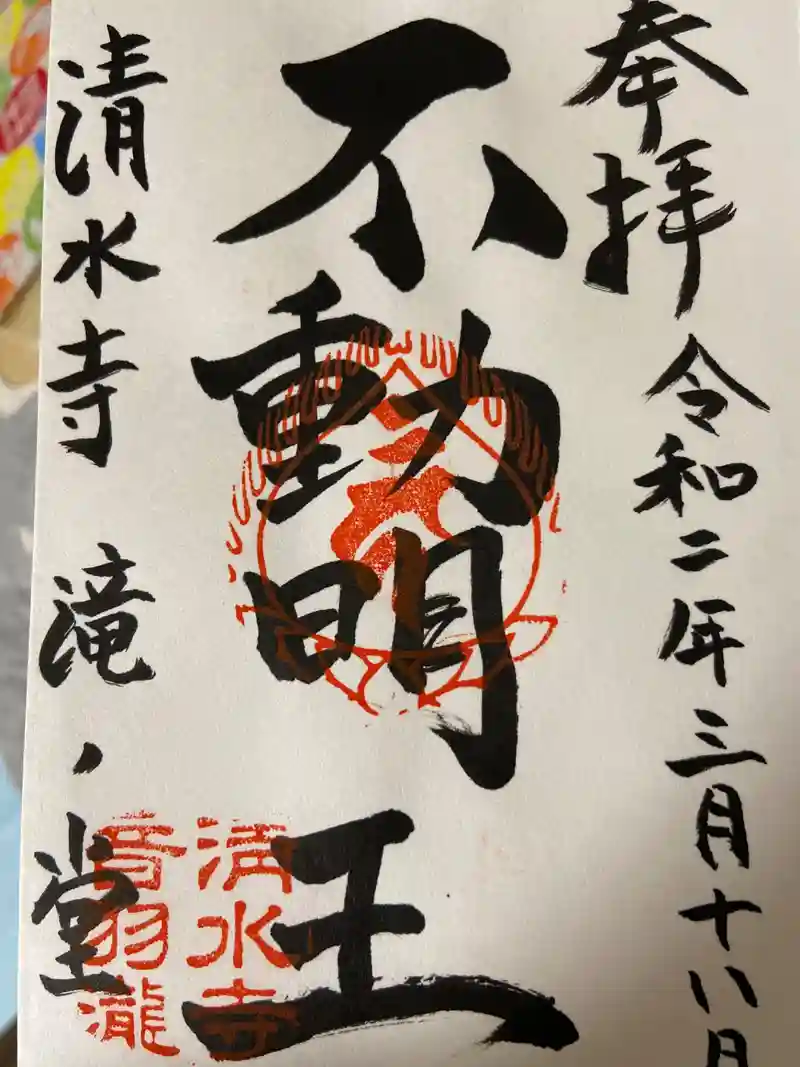 奉拝 令和二年三月十八日
不動明王
清水寺 滝ノ堂
清水寺
音羽瀧